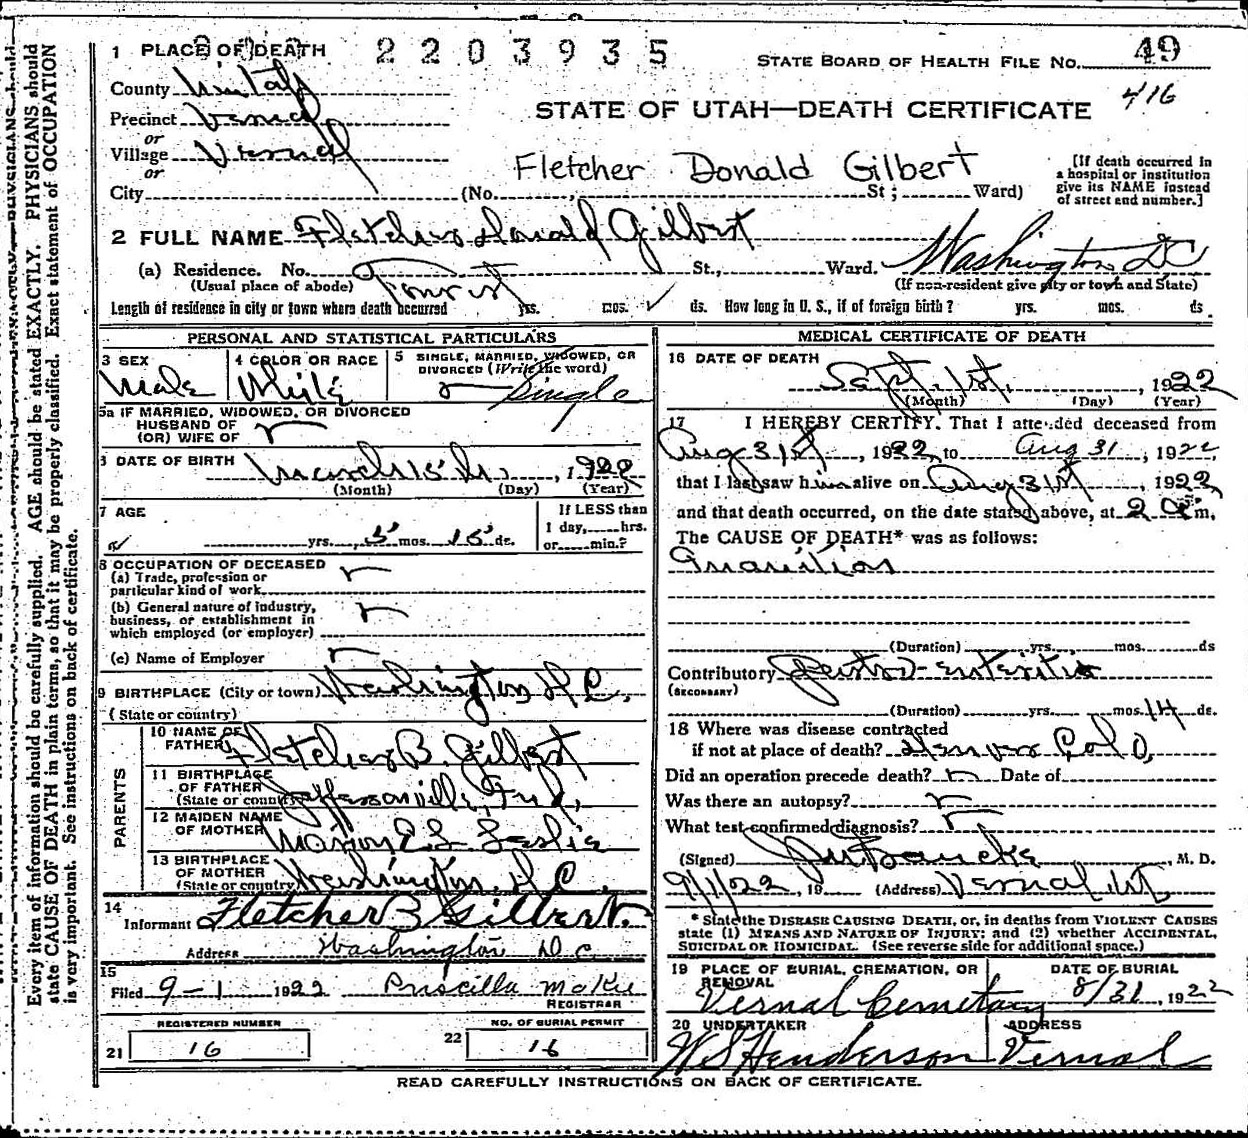 1 PLACE OF DEATH
2203935
STATE BOARD OF HEALTH FILE No. 49
416
County Uintah
STATE OF UTAH—DEATH CERTIFICATE
Precinct Vernal
or
Village Vernal
or
Fletcher Donald Gilbert
City (No. St; Ward)
[If death occurred in a hospital or institution give its NAME instead of street and number.]
2 FULL NAME Fletcher Donald Gilbert
(a) Residence. No. Tourist St., Ward. Washington DC
(Usual place of abode) (If non-resident give city or town and State)
Length of residence in city or town where death occurred yrs. mos. ds. How long in U. S., if of foreign birth? yrs. mos. ds.
PERSONAL AND STATISTICAL PARTICULARS
3 SEX Male
4 COLOR OR RACE White
5 SINGLE, MARRIED, WIDOWED, OR DIVORCED (Write the word) Single
5a IF MARRIED, WIDOWED, OR DIVORCED
HUSBAND OF
(OR) WIFE OF
6 DATE OF BIRTH March 15th, 1922
(Month) (Day) (Year)
7 AGE yrs. 5 mos. 15 ds.
If LESS than
1 day, hrs.
or min.?
8 OCCUPATION OF DECEASED
(a) Trade, profession or
particular kind of work
(b) General nature of industry,
business, or establishment in
which employed (or employer)
(c) Name of Employer
9 BIRTHPLACE (City or town) Washington D.C.
(State or country)
PARENTS
10 NAME OF
FATHER Fletcher B. Gilbert
11 BIRTHPLACE
OF FATHER
(State or country) Jeffersonville, Ind.
12 MAIDEN NAME
OF MOTHER Marion E. L. Leslie
13 BIRTHPLACE
OF MOTHER
(State or country) Washington, D.C.
14
Informant Fletcher B Gilbert.
Address Washington D.C.
15
Filed 9-1 1922 Priscilla McKee
REGISTRAR
REGISTERED NUMBER
21 16
NO. OF BURIAL PERMIT
22 16
MEDICAL CERTIFICATE OF DEATH
16 DATE OF DEATH
Sept. 1st, 1922
(Month) (Day) (Year)
17 I HEREBY CERTIFY, That I attended deceased from
Aug 31st, 1922, to Aug 31, 1922,
that I last saw him alive on Aug 31st 1922
and that death occurred, on the date stated above, at 2 a m.
The CAUSE OF DEATH* was as follows:
Inanition
(Duration) yrs. mos. ds
Contributory Gastro-enteritis
(SECONDARY)
(Duration) yrs. mos. 14 ds.
18 Where was disease contracted
if not at place of death? Denver Colo,
Did an operation precede death? Date of
Was there an autopsy?
What test confirmed diagnosis?
(Signed) M. D.
9/1/22, 19 (Address) Vernal, Ut.
* State the DISEASE CAUSING DEATH, or, in deaths from VIOLENT CAUSES
state (1) MEANS AND NATURE OF INJURY; and (2) whether ACCIDENTAL,
SUICIDAL OR HOMICIDAL. (See reverse side for additional space.)
19 PLACE OF BURIAL, CREMATION, OR
REMOVAL
Vernal Cemetary
DATE OF BURIAL
8/31, 1922
20 UNDERTAKER
W S Henderson
ADDRESS
Vernal
READ CAREFULLY INSTRUCTIONS ON BACK OF CERTIFICATE.
Every item of information should be carefully supplied. AGE should be stated EXACTLY. PHYSICIANS should
state CAUSE OF DEATH in plain terms, so that it may be properly classified. Exact statement of OCCUPATION
is very important. See instructions on back of certificate.